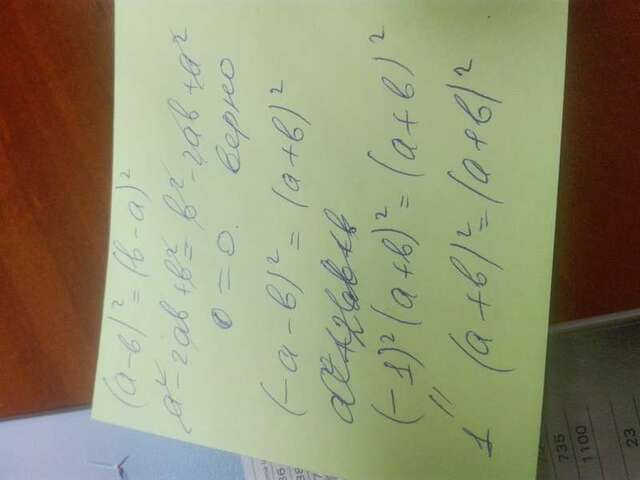 (a-b)² = (b-a)²
a²-2ab+b² = b²-2ab+a²
0 = 0. верно
(-a-b)² = (a+b)²
(-1)²(a+b)² = (a+b)²
1 (a+b)² = (a+b)²
735
1100
23